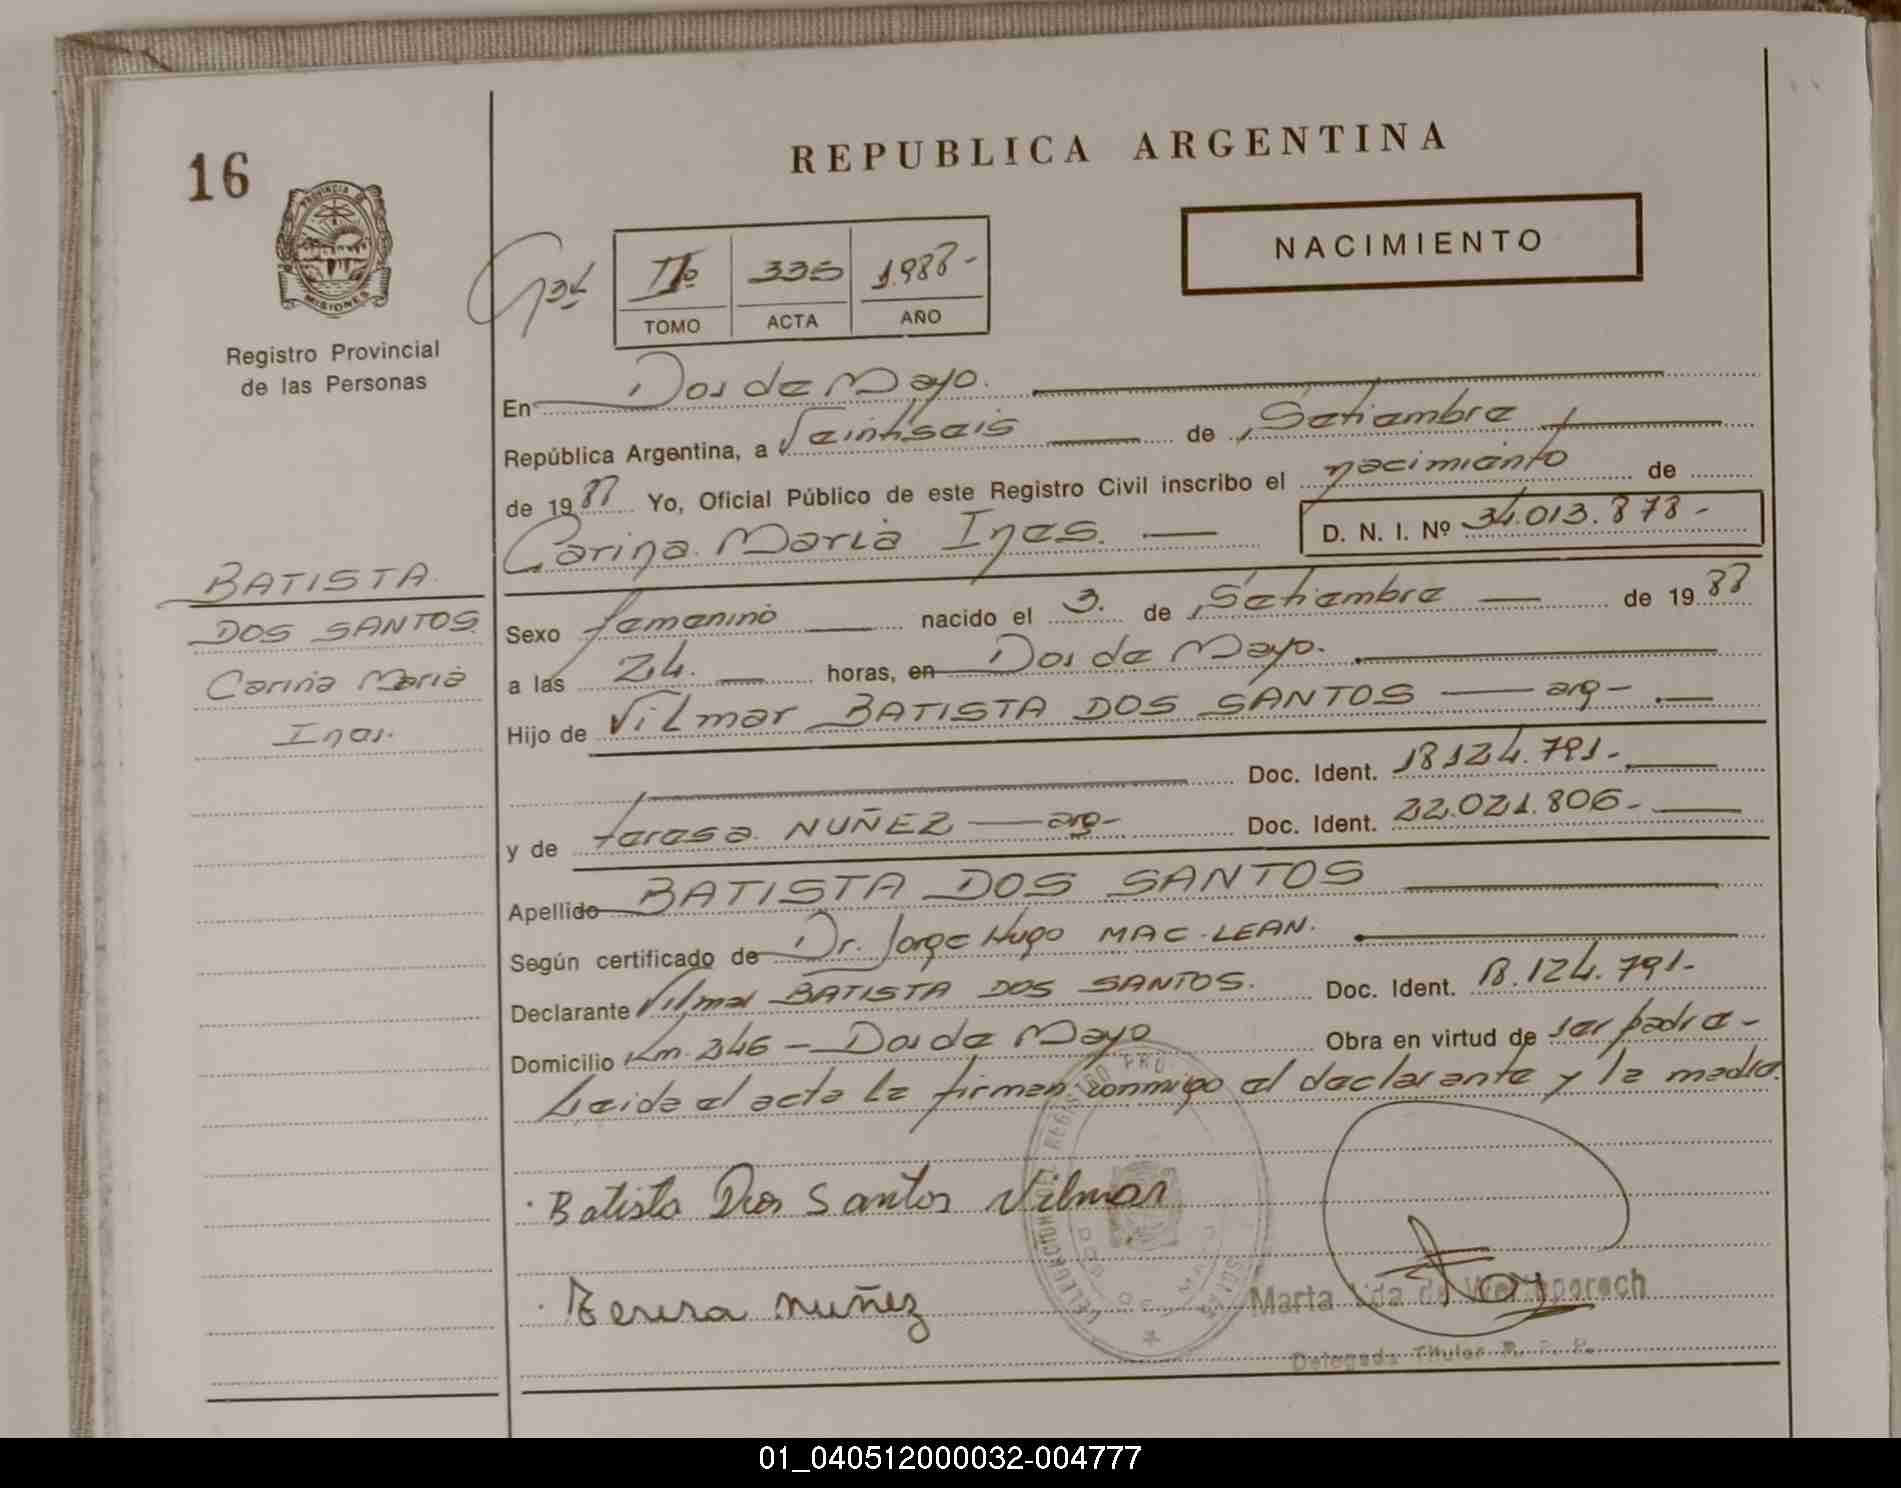 REPUBLICA ARGENTINA
16
PROVINCIA DE
MISIONES
Registro Provincial
de las Personas
NACIMIENTO
IIº 335 1.988-
TOMO ACTA AÑO
En Dos de Mayo.
República Argentina, a Veintiseis de Setiembre
de 1988 Yo, Oficial Público de este Registro Civil inscribo el nacimiento de
Carina Maria Ines. D. N. I. Nº 34.013.878-
BATISTA
DOS SANTOS
Carina Maria
Ines.
Sexo femenino nacido el 3. de Setiembre de 1988
a las 24. horas, en Dos de Mayo.
Hijo de Vilmar BATISTA DOS SANTOS arg-
Doc. Ident. 18.124.791.-
y de teresa NUÑEZ arg- Doc. Ident. 22.021.806-
Apellido BATISTA DOS SANTOS
Según certificado de Dr. Jorge Hugo MAC-LEAN.
Declarante Vilmar BATISTA DOS SANTOS. Doc. Ident. 18.124.791-
Domicilio Km. 246 - Dos de Mayo Obra en virtud de ser padre-
Leida el acta la firman conmigo el declarante y la madre.
Batista Dos Santos Vilmar
Teresa nuñez
Marta de
Delegada Titular R. P. P.
01_040512000032-004777